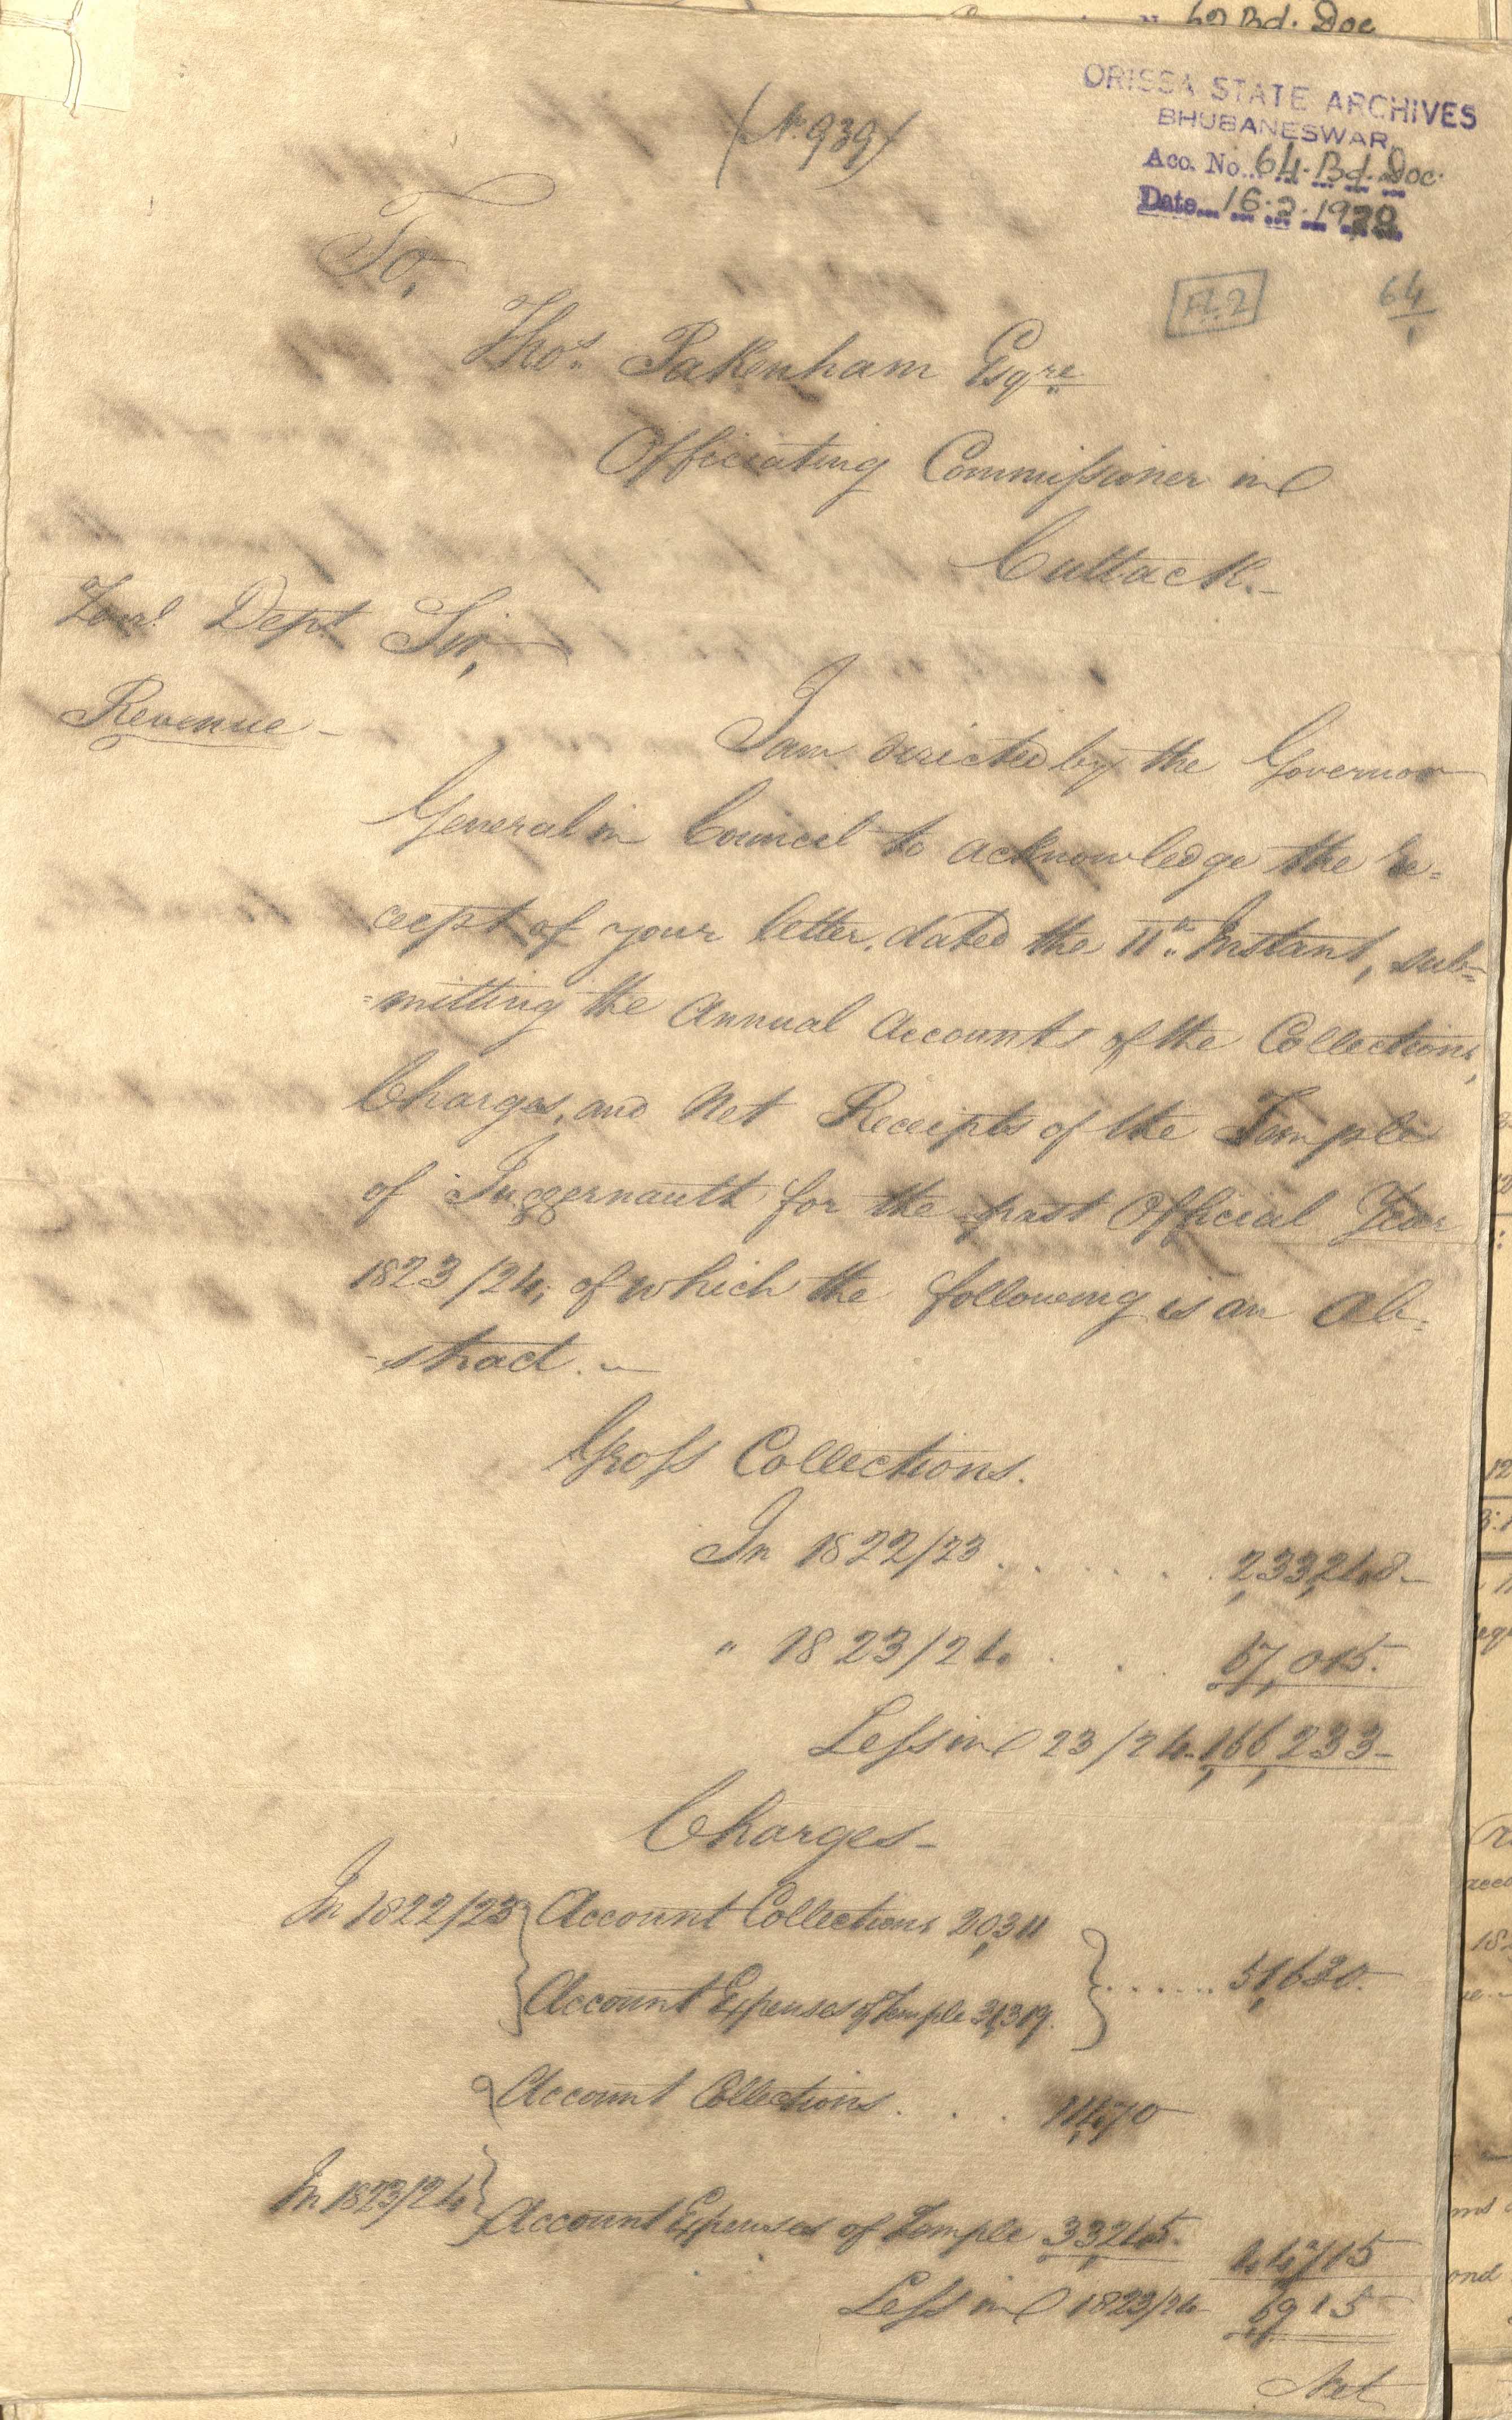 60 Bd. Doc
ORISSA STATE ARCHIVES
BHUBANESWAR
Acc. No... 64-Bd. Doc.
Date...
(No. 939)
64
To,
Thos. Pakenham Esqre
Officiating Commissioner in
Cuttack.-
Dept Sir,
Revenue -
I am directed by the Governor
General in Council to acknowledge the re=
ceipt of your letter, dated the 11th. Instant, sub=
=mitting the Annual Accounts of the Collections,
Charges, and Net Receipts of the Temple
of Juggernauth for the past Official Year
1823/24, of which the following is an Ab=
-stract. -
Gross Collections.
In 1822/23 . . . . . . 233,248-
" 1823/24 . . . 67,015.
Less in 23/24. 166,233-
Charges-
In 1822/23 { Account Collections 20,311
Account Expenses of Temple 31,319. } ...... 51,630.
Account Collections . . . . 11,470
In 1823/24 { Account Expenses of Temple 33,245. 44,715
Less in 1823/24 6915
Net